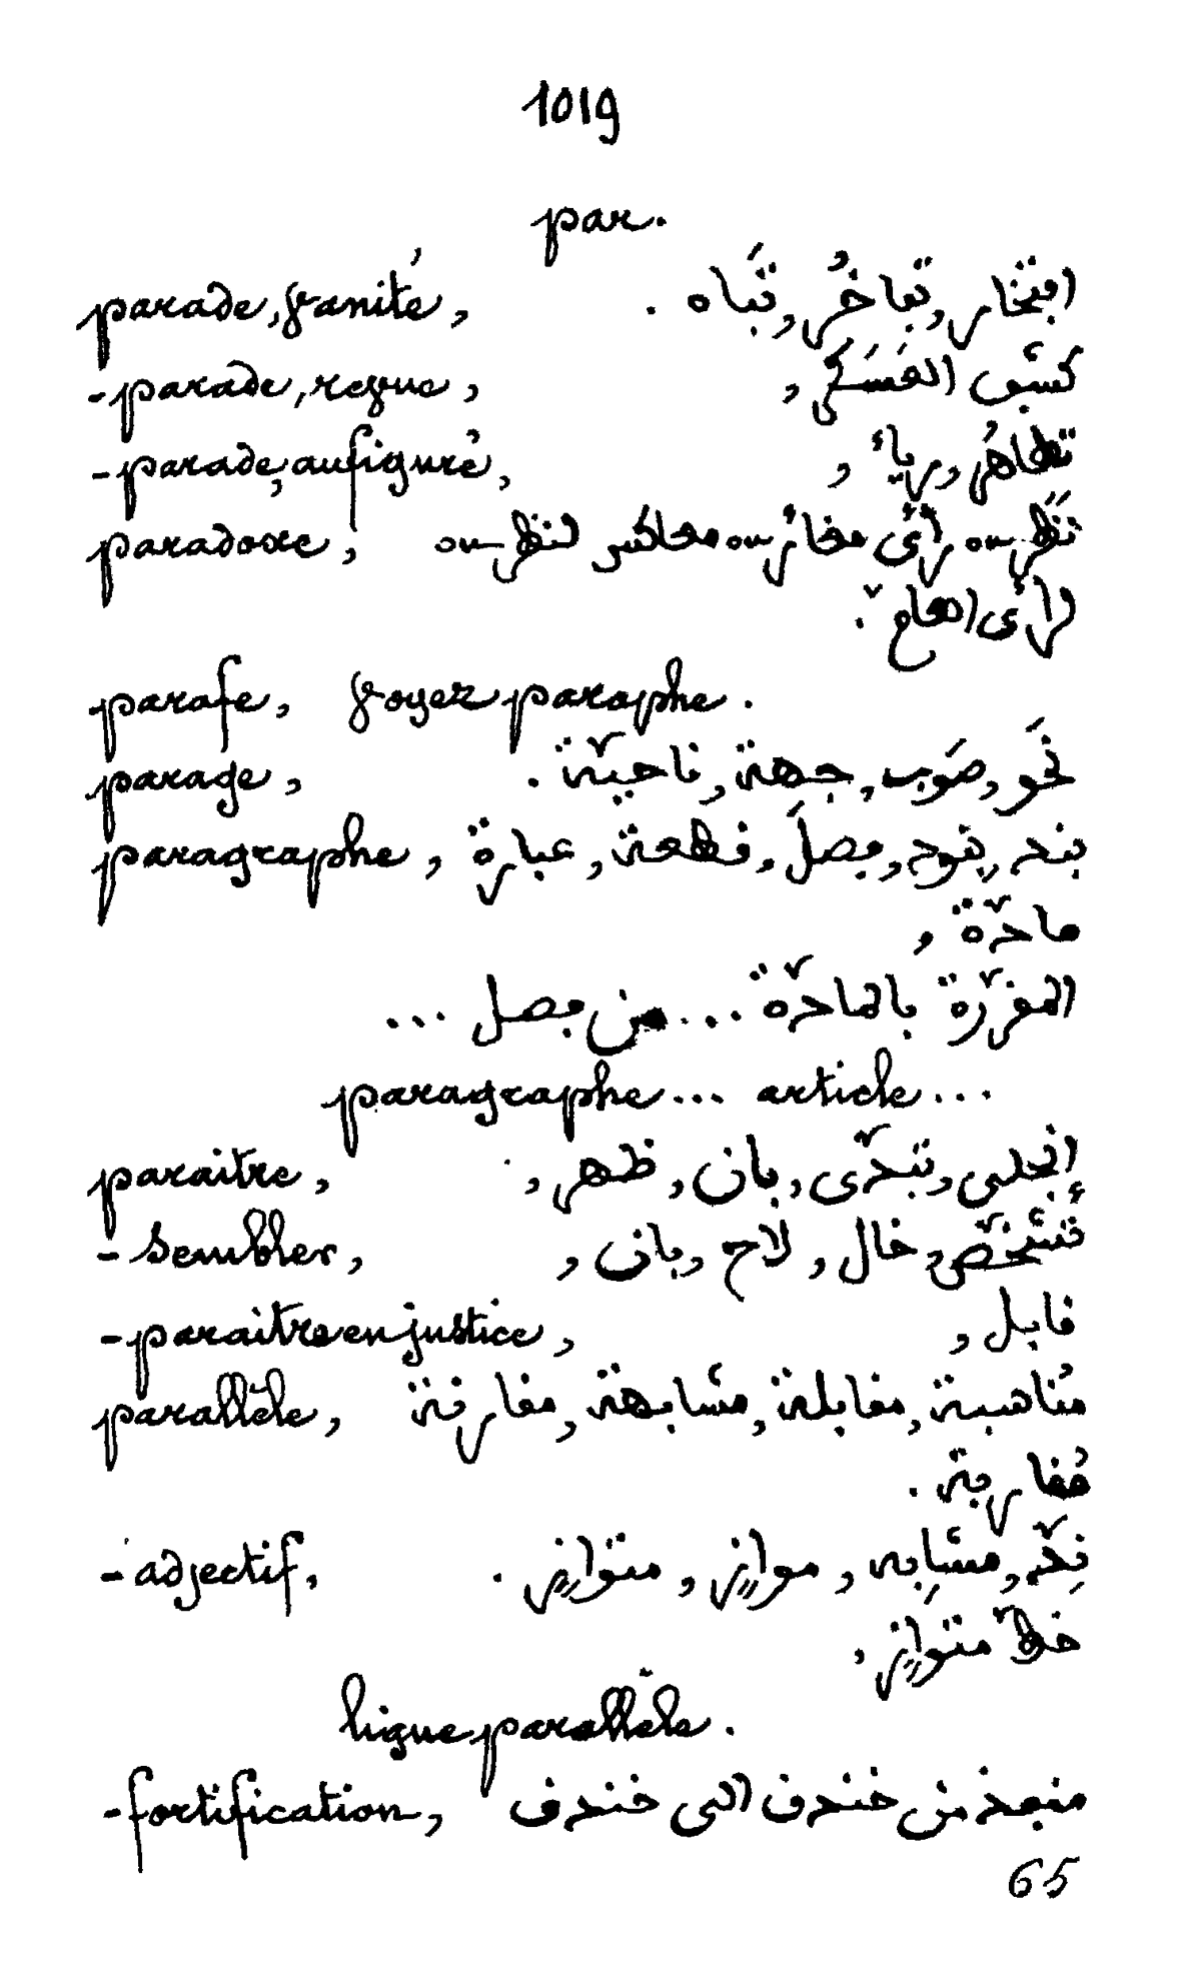 1019
par.
parade, vanité, افتخار, تفاخُر, تَباه.
- parade, revue, كشف العَسكَر,
- parade, au figuré, تظاهُر, رياء,
paradoxe, نَظَر ـ رأى مغائر ـ معاكس لنظر ـ
لرأى العامّ.
parafe, voyez paraphe.
parage, نَحَو, صَوب, جهة, ناحيّة.
paragraphe, بند, بنود, فصل, قطعة, عبارة
مادّة,
المقرّرة بالمادّة ... من فصل ...
paragraphe... article...
paraitre, إنجلى, تبدّى, بان, ظهر,
- sembler, تشخّص, خال, لاح, بان,
- paraitre en justice, قابل,
parallèle, مُناسبة, مقابلة, مشابهة, مقارنة
مُقاربة.
- adjectif, نِدّ, مشابِه, موازٍ, متوازٍ.
خطّ متوازٍ,
ligne parallèle.
- fortification, منفذ من خندق الى خندق
65